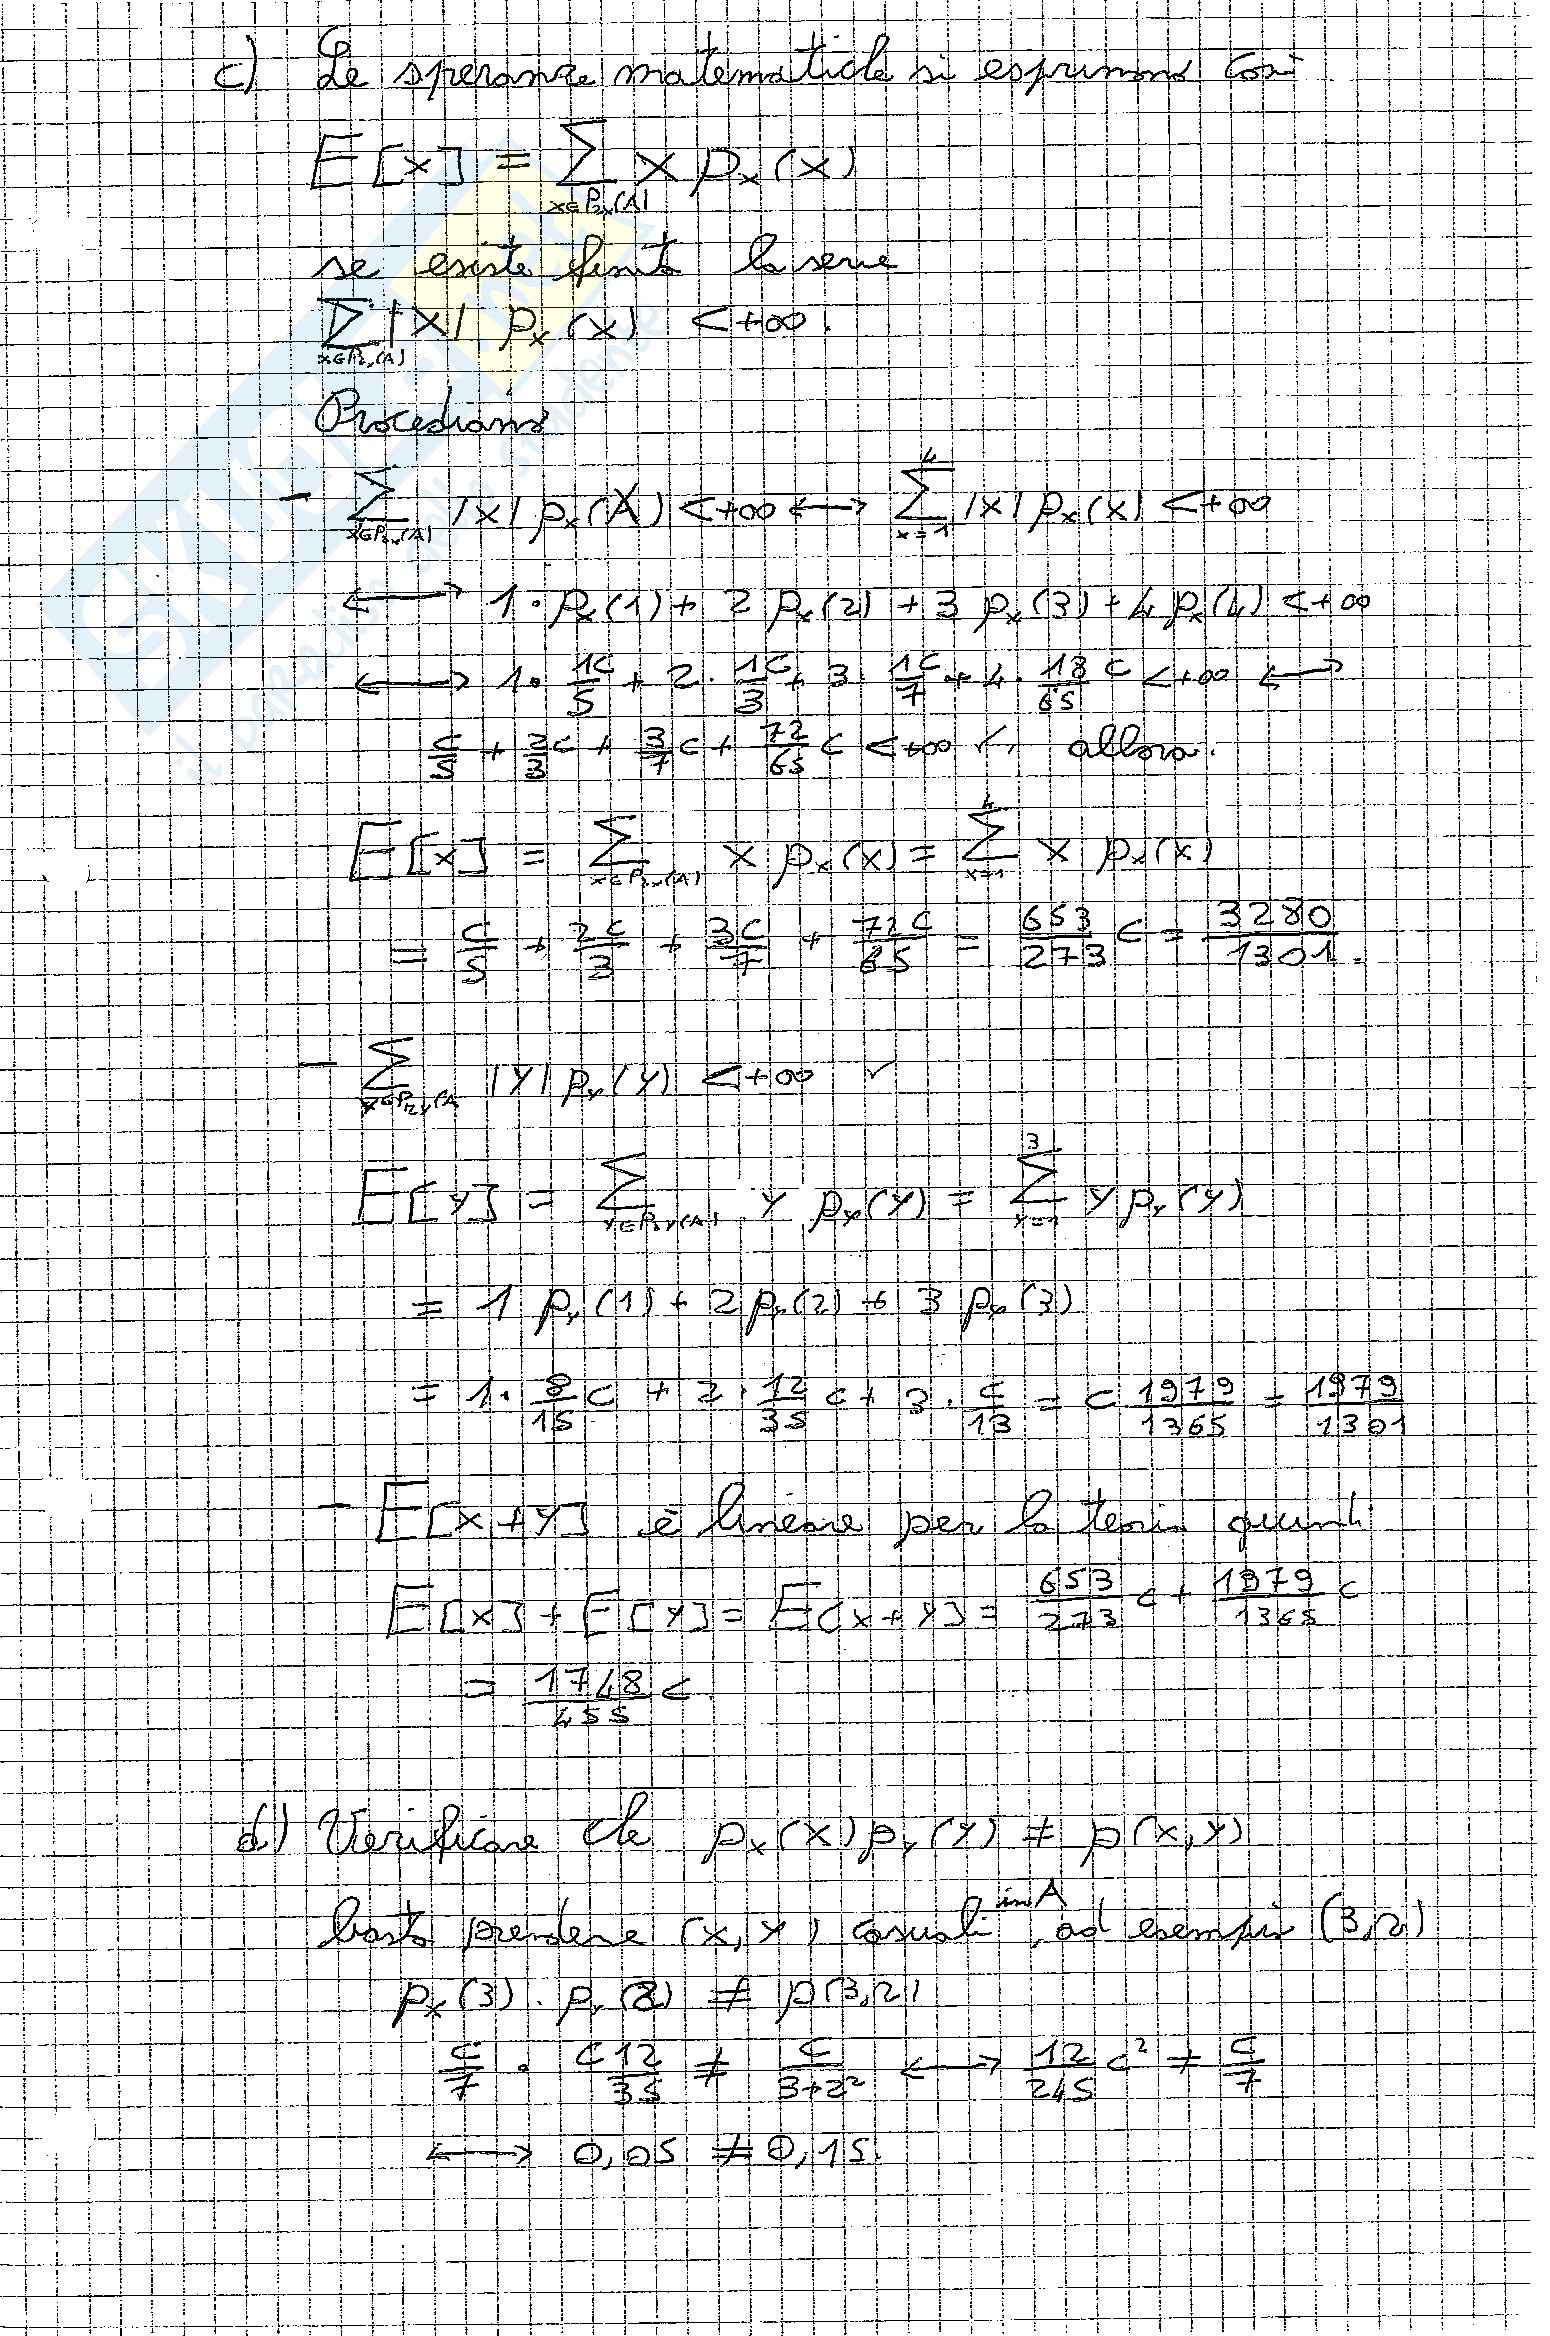 c) Le speranze matematiche si esprimono così
E[X] = ∑_{x∈P_{rx}(A)} x p_x(x)
se esiste finita la serie
∑_{x∈P_{rx}(A)} |x| p_x(x) <+∞.
Procediamo
- ∑_{x∈P_{rx}(A)} |x| p_x(x) <+∞ ⟷ ∑_{x=1}^{4} |x| p_x(x) <+∞
⟷ 1· p_x(1) + 2 p_x(2) + 3 p_x(3) + 4 p_x(4) <+∞
⟷ 1· 1c/5 + 2· 1c/3 + 3· 1c/7 + 4· 18/65 c <+∞ ⟷
c/5 + 2/3 c + 3/7 c + 72/65 c <+∞ ✓, allora.
E[X] = ∑_{x∈P_{rx}(A)} x p_x(x) = ∑_{x=1}^{4} x p_x(x)
= c/5 + 2c/3 + 3c/7 + 72c/65 = 653/273 c = 3280/1301.
- ∑_{y∈P_{ry}(A} |y| p_y(y) <+∞ ✓
E[Y] = ∑_{y∈P_{ry}(A)} y p_y(y) = ∑_{y=1}^{3} y p_y(y)
= 1 p_y(1) + 2 p_y(2) + 3 p_y(3)
= 1· 8/15 c + 2· 12/35 c + 3· c/13 = c 1979/1365 = 1979/1301
- E[X+Y] è lineare per la teoria quindi
E[X] + E[Y] = E[X+Y] = 653/273 c + 1979/1365 c
= 1748/455 c
d) Verificare che p_x(x) p_y(y) ≠ p(x,y)
basta prendere (x,y) casuali in A, ad esempio (3,2)
p_x(3) · p_y(2) ≠ p(3,2)
c/7 · c12/35 ≠ c/3+2² ⟷ 12/245 c² ≠ c/7
⟷ 0,05 ≠ 0,15.